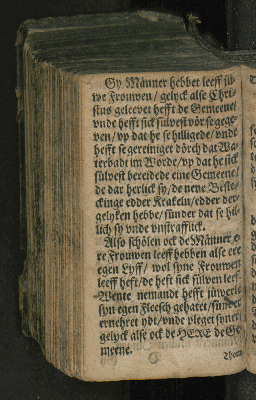 Gy Männer hebbet leeff jü-
we Frouwen / gelyck alse Chri-
stus geleevet hefft de Gemeene /
vnde hefft sick sülvest vör se gege-
ven / vp dat he se hilligede / vnde
hefft se gereiniget dörch dat Wa-
terbadt im Worde / vp dat he sick
sülvest bereidede eine Gemeene /
de dar herlick sy / de nene Befle-
ckinge edder Krakeln / edder der-
gelyken hebbe / sünder dat se hil-
lich sy vnde vnstrafflick.
Also schölen ock de Männer e-
re Frouwen leeff hebben alse ere
egen Lyff / wol syne Frouwen
leeff heft / de heft sick sülven leeff
Wente nemandt hefft jüwerle
syn egen Fleesch gehatet / sünder
ernehret ydt / vnde pleget syner /
gelyck alse ock de HERE de Ge-
meene.
Thom